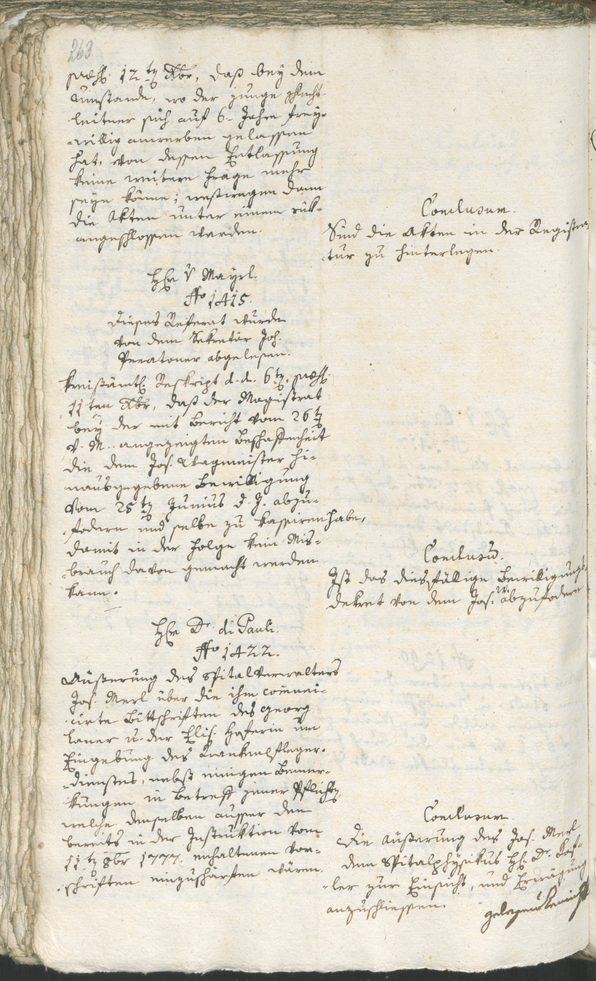 263
præs. 12ten Xbr, daß bey dem
Umstande, wo der junge
leitner sich auf 6 Jahre frey-
willig anwerben gelassen
hat, von dessen Entlassung
keine weitere Frage mehr
seyn könne; weßwegen dann
die Akten unter einem rük-
angeschlossen werden.
Conclusum.
Sind die Akten in der Registra-
tur zu hinterlegen.
Hr v Mayrl.
No 1415.
Dieses Referat wurde
von dem Sekretär Joh.
Peratoner abgelesen.
Kreisämtl. Reskript d. d. 6ten, præs.
11ten Xbr, daß der Magistrat
bey der mit Bericht vom 26ten
v. M. angezeigten Beschaffenheit
die dem Jos. Wagmeister hi-
nausgegebene Bewilligung
vom 25ten Junius d. J. abzu-
fodern und selbe zu kassiren habe,
damit in der Folge kein Mis-
brauch davon gemacht werden
kann.
Conclusum.
Ist das diesfällige Bewilligungs-
dekret von dem Jos. W. abzufodern
Hr Dr. di Pauli.
No 1422.
Äußerung des Spitalverwalters
Jos. Merl über die ihm communi-
cirte Bittschriften des Georg
laner u. der Elis. Haserin um
Eingebung des Krankenpfleger-
dienstes, nebst einigen Bemer-
kungen in Betreff jener Pflichten
welche denselben ausser den
bereits in der Instruktion vom
11ten 8br 1777. enthaltenen Vor-
schriften einzuschärfen wären.
Conclusum.
Die Äußerung des Jos. Merl
dem Spitalphysikus H. Dr.
ler zur Einsicht, und Erwägung
anzuschliessen.